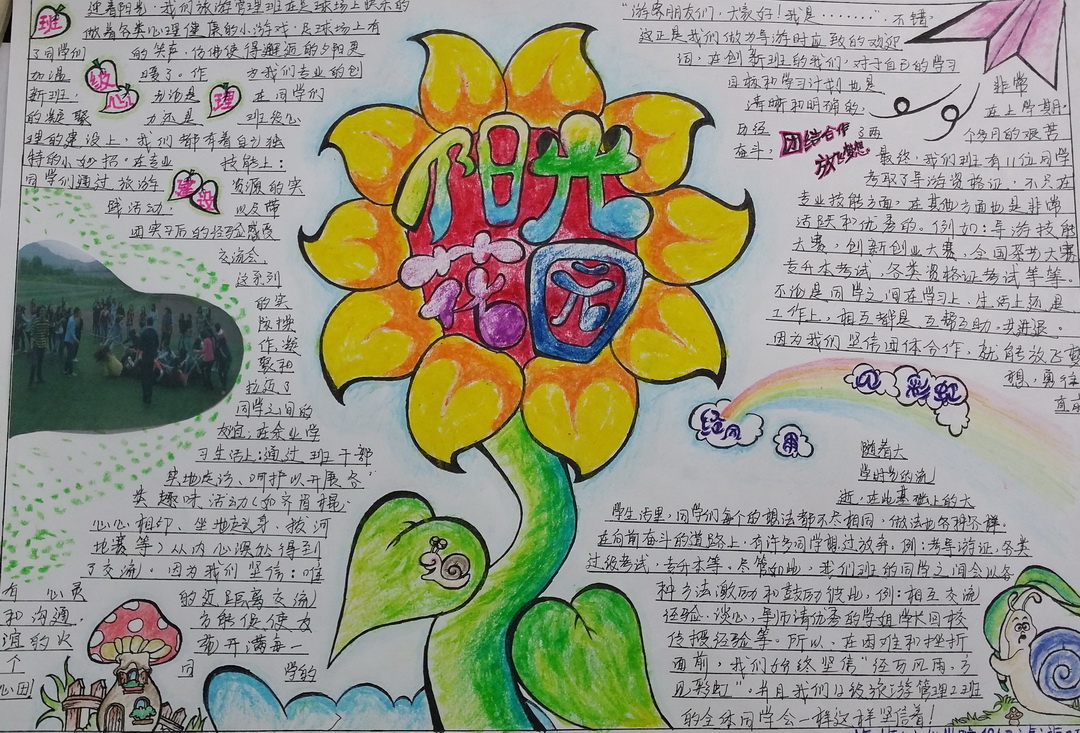 迎着阳光,我们旅游管理班在足球场上快乐的
做着各类心理健康的小游戏,足球场上有
了同学们 的笑声,仿佛使得邂逅的夕阳更
加温 暖了。作 为我们专业的创
新班, 无论是 在同学们
的凝聚 力还是 班级心
理的建设上,我们都有着自己独
特的小妙招,在专业 技能上:
同学们通过旅游 资源的实
践活动, 以及带
团实习后的经验感受
交流会,
这系列
的实
际操
作,凝
聚和
拉近了
同学之间的
友谊;在余业学
习生活上:通过班干部
实地走访、呵护以开展各
类趣味活动(如齐眉棍,
心心相印、坐地起身、拔河
比赛等)从内心深处得到
了交流)。因为我们坚信:唯
有 心灵 的近距离交流
和沟通, 方能使使友
谊的火 萄开满每一
个 同 学的
心田
班
级
心
理
建
设
阳光
花园
"游客朋友们,大家好!我是········"不错,
这正是我们做为导游时应致的欢迎
词,在创新班的我们,对于自己的学习
目标和学习计划也是 非常
清晰和明确的, 在上学期,
历经 了两 个月的艰苦
奋斗, 最终,我们班有11位同学
考取了导游资格证,不只在
专业技能方面,在其他方面也是非常
活跃和优秀的。例如:导游技能
大赛,创新创业大赛,全国茶艺大赛
专升本考试,各类资格证考试等等。
不论是同学之间在学习上,生活上还是
工作上,相互都是互帮互助,共进退。
因为我们坚信团体合作,就能放飞梦
想,勇往
直前
团结合作
放飞梦想
经风
雨
见彩虹
随着大
学时光的流
逝,在此基础上的大
学生活里,同学们每个的想法都不尽相同,做法也各种各样,
在向前奋斗的道路上,有许多同学想过放弃,例:考导游证,各类
过级考试,专升本等。尽管如此,我们班的同学之间会以各
种方法激励和鼓励彼此,例:相互交流
经验、谈心,导师请优秀的学姐学长回校
传授经验等。所以,在困难和挫折
面前,我们始终坚信"经历风雨,方
见彩虹",并且我们17级旅游管理2班
的全体同学会一样这样坚信着!